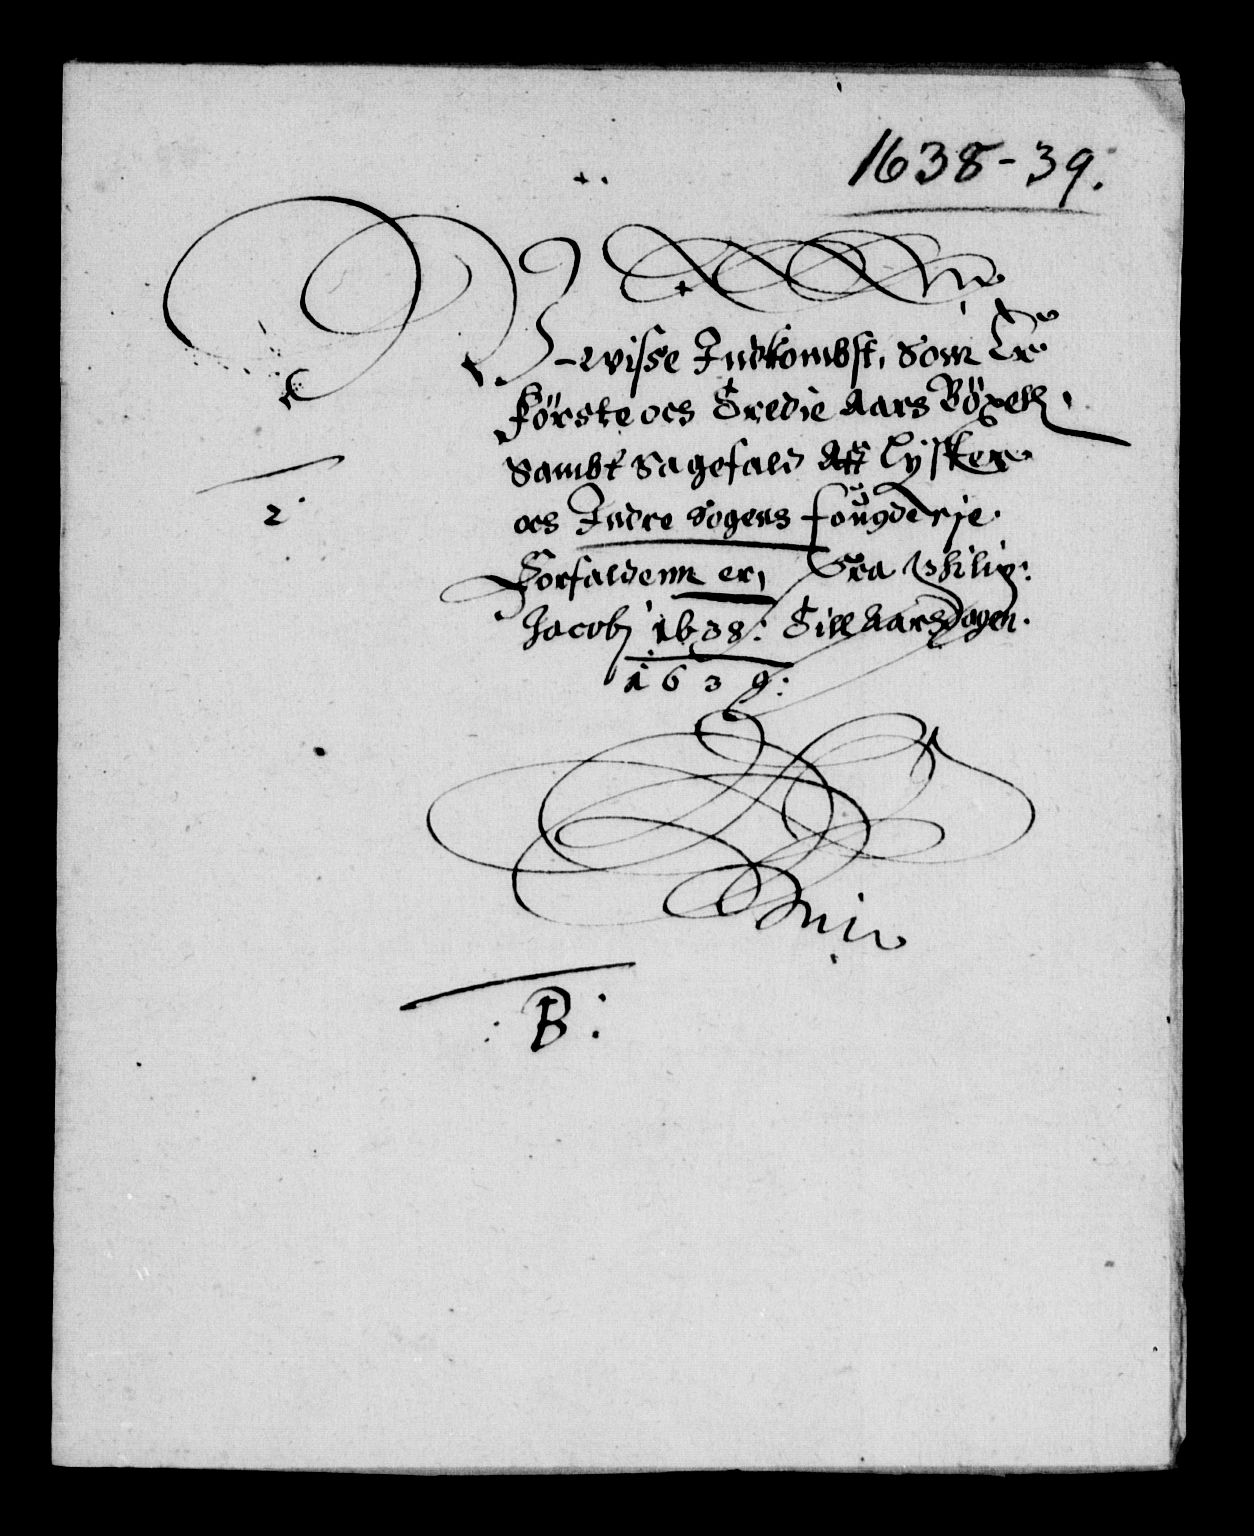 1638-39.
U-wisse Indkombst, Som Er
Förste och Tredie Aars Böxell
Sambt Sagefald Aff Lysker
och Indre Sogens Fougderie
2
Forfaldenn er, Fra Philip:
Jacobj 1638: Till Aarsdagen
1639:
B: